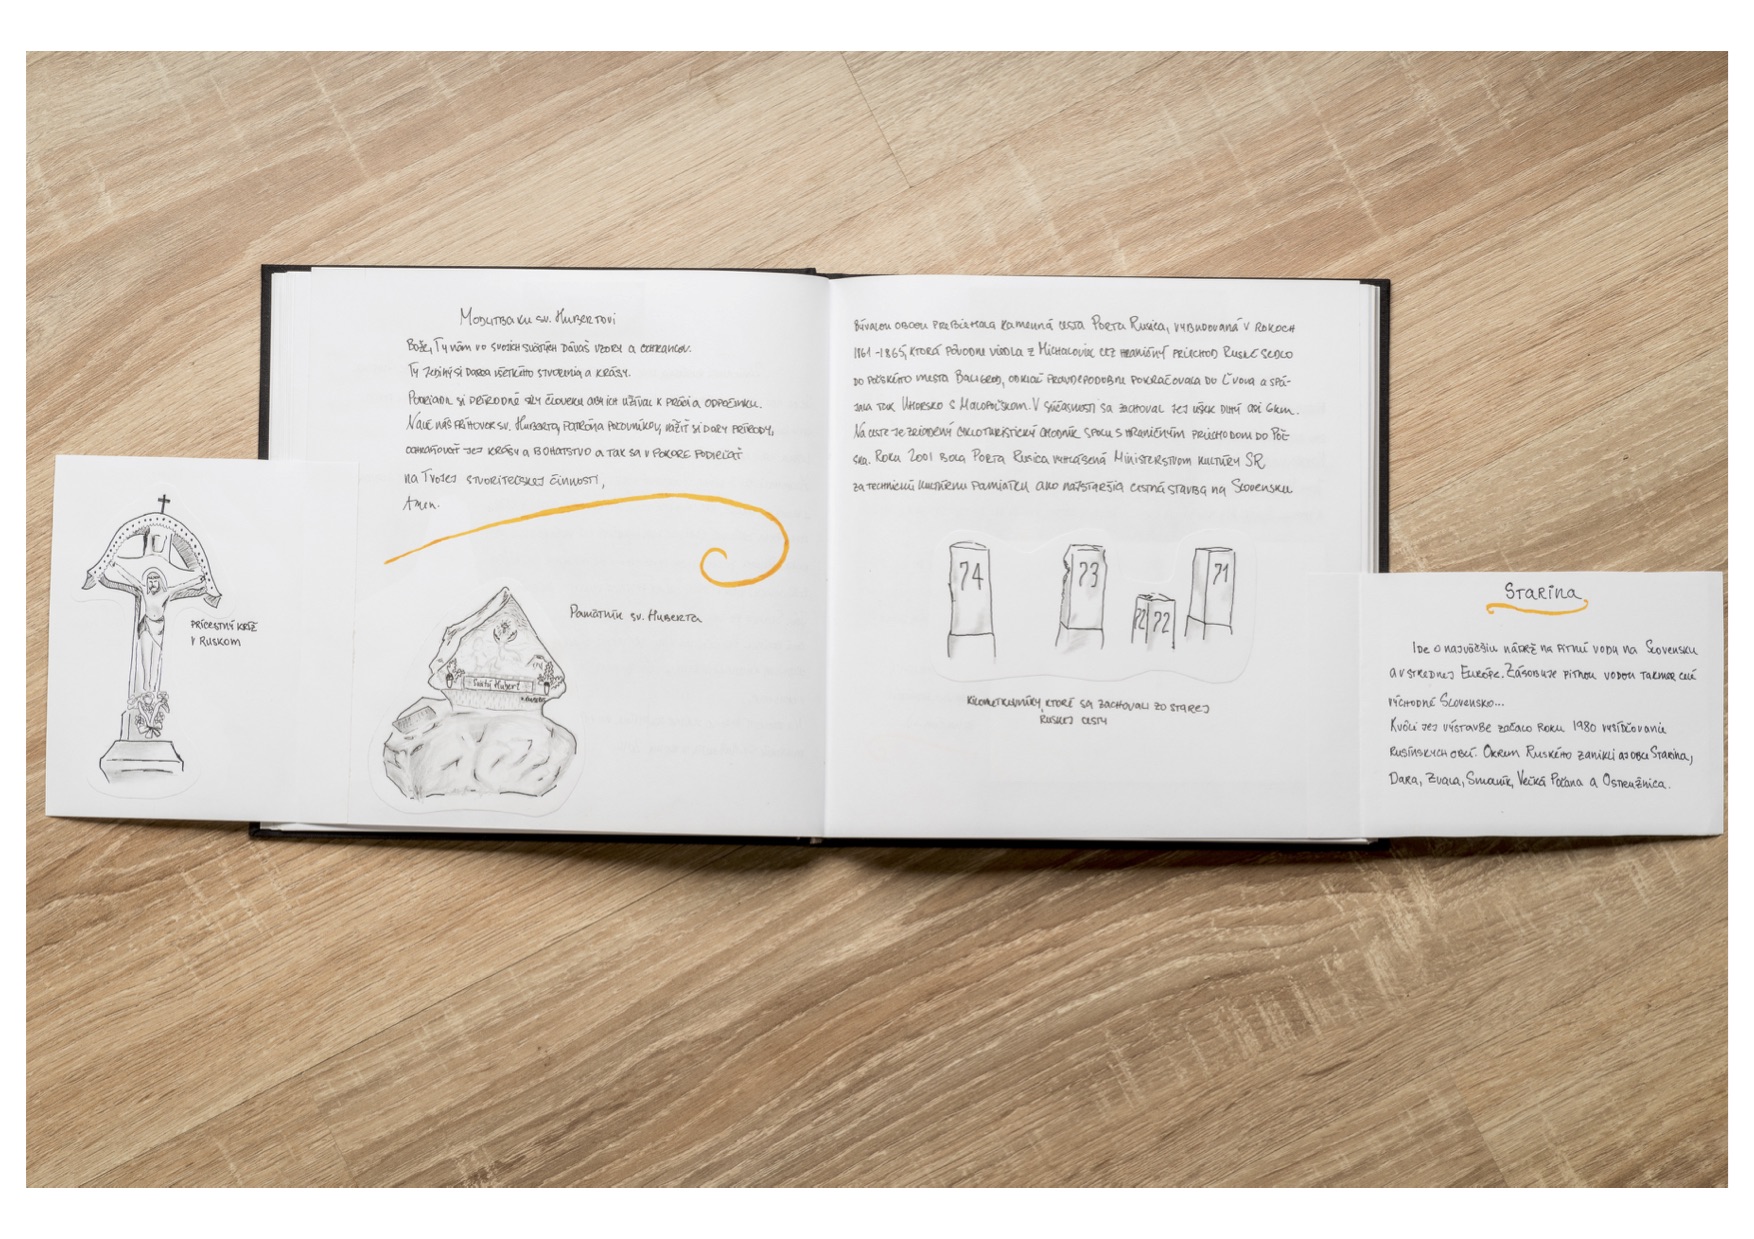 PRÍCESTNÝ KRÍŽ
V RUSKOM
MODLITBA KU SV. HUBERTOVI
BOŽE, TY NÁM VO SVOJICH SVÄTÝCH DÁVAŠ VZORY A OCHRANCOV.
TY JEDINÝ SI DARCA VŠETKÉHO STVORENIA A KRÁSY.
PODRIADIL SI PRÍRODNÉ SILY ČLOVEKU ABY ICH UŽÍVAL K PRÁCI A ODPOČINKU.
NAUČ NÁS PRÍHOVOR SV. HUBERTA, PATRÓNA POĽOVNÍKOV, VÁŽIŤ SI DARY PRÍRODY,
OCHRAŇOVAŤ JEJ KRÁSY A BOHATSTVO A TAK SA V POKORE PODIEĽAŤ
NA TVOJEJ STVORITEĽSKEJ ČINNOSTI,
AMEN.
PAMÄTNÍK SV. HUBERTA
Svätý Hubert
BÝVALOU OBCOU PREBIEHALA KAMENNÁ CESTA PORTA RUSICA, VYBUDOVANÁ V ROKOCH
1861-1865, KTORÁ PÔVODNE VIEDLA Z MICHALOVIEC CEZ HRANIČNÝ PRIECHOD RUSKÉ SEDLO
DO POĽSKÉHO MESTA BALIGROD, ODKIAĽ PRAVDEPODOBNE POKRAČOVALA DO ĽVOVA A SPÁ-
JALA TAK UHORSKO S MALOPOĽSKOM. V SÚČASNOSTI SA ZACHOVAL JEJ ÚSEK DLHÝ ASI 6KM.
NA CESTE JE ZRIADENÝ CYKLOTURISTICKÝ CHODNÍK SPOLU S HRANIČNÝM PRIECHODOM DO POĽ-
SKA. ROKU 2001 BOLA PORTA RUSICA VYHLÁSENÁ MINISTERSTVOM KULTÚRY SR
ZA TECHNICKÚ KULTÚRNU PAMIATKU AKO NAJSTARŠIA CESTNÁ STAVBA NA SLOVENSKU
74
73
72
72
71
KILOMETROVNÍKY, KTORÉ SA ZACHOVALI ZO STAREJ
RUSKEJ CESTY
STARINA
IDE O NAJVÄČŠIU NÁDRŽ NA PITNÚ VODU NA SLOVENSKU
A V STREDNEJ EURÓPE. ZÁSOBUJE PITNOU VODOU TAKMER CELÉ
VÝCHODNÉ SLOVENSKO...
KVÔLI JEJ VÝSTAVBE ZAČALO ROKU 1980 VYSÍDĽOVANIE
RUSÍNSKYCH OBCÍ. OKREM RUSKÉHO ZANIKLI AJ OBCE STARINA,
DARA, ZVALA, SMOLNÍK, VEĽKÁ POĽANA A OSTROŽNICA.